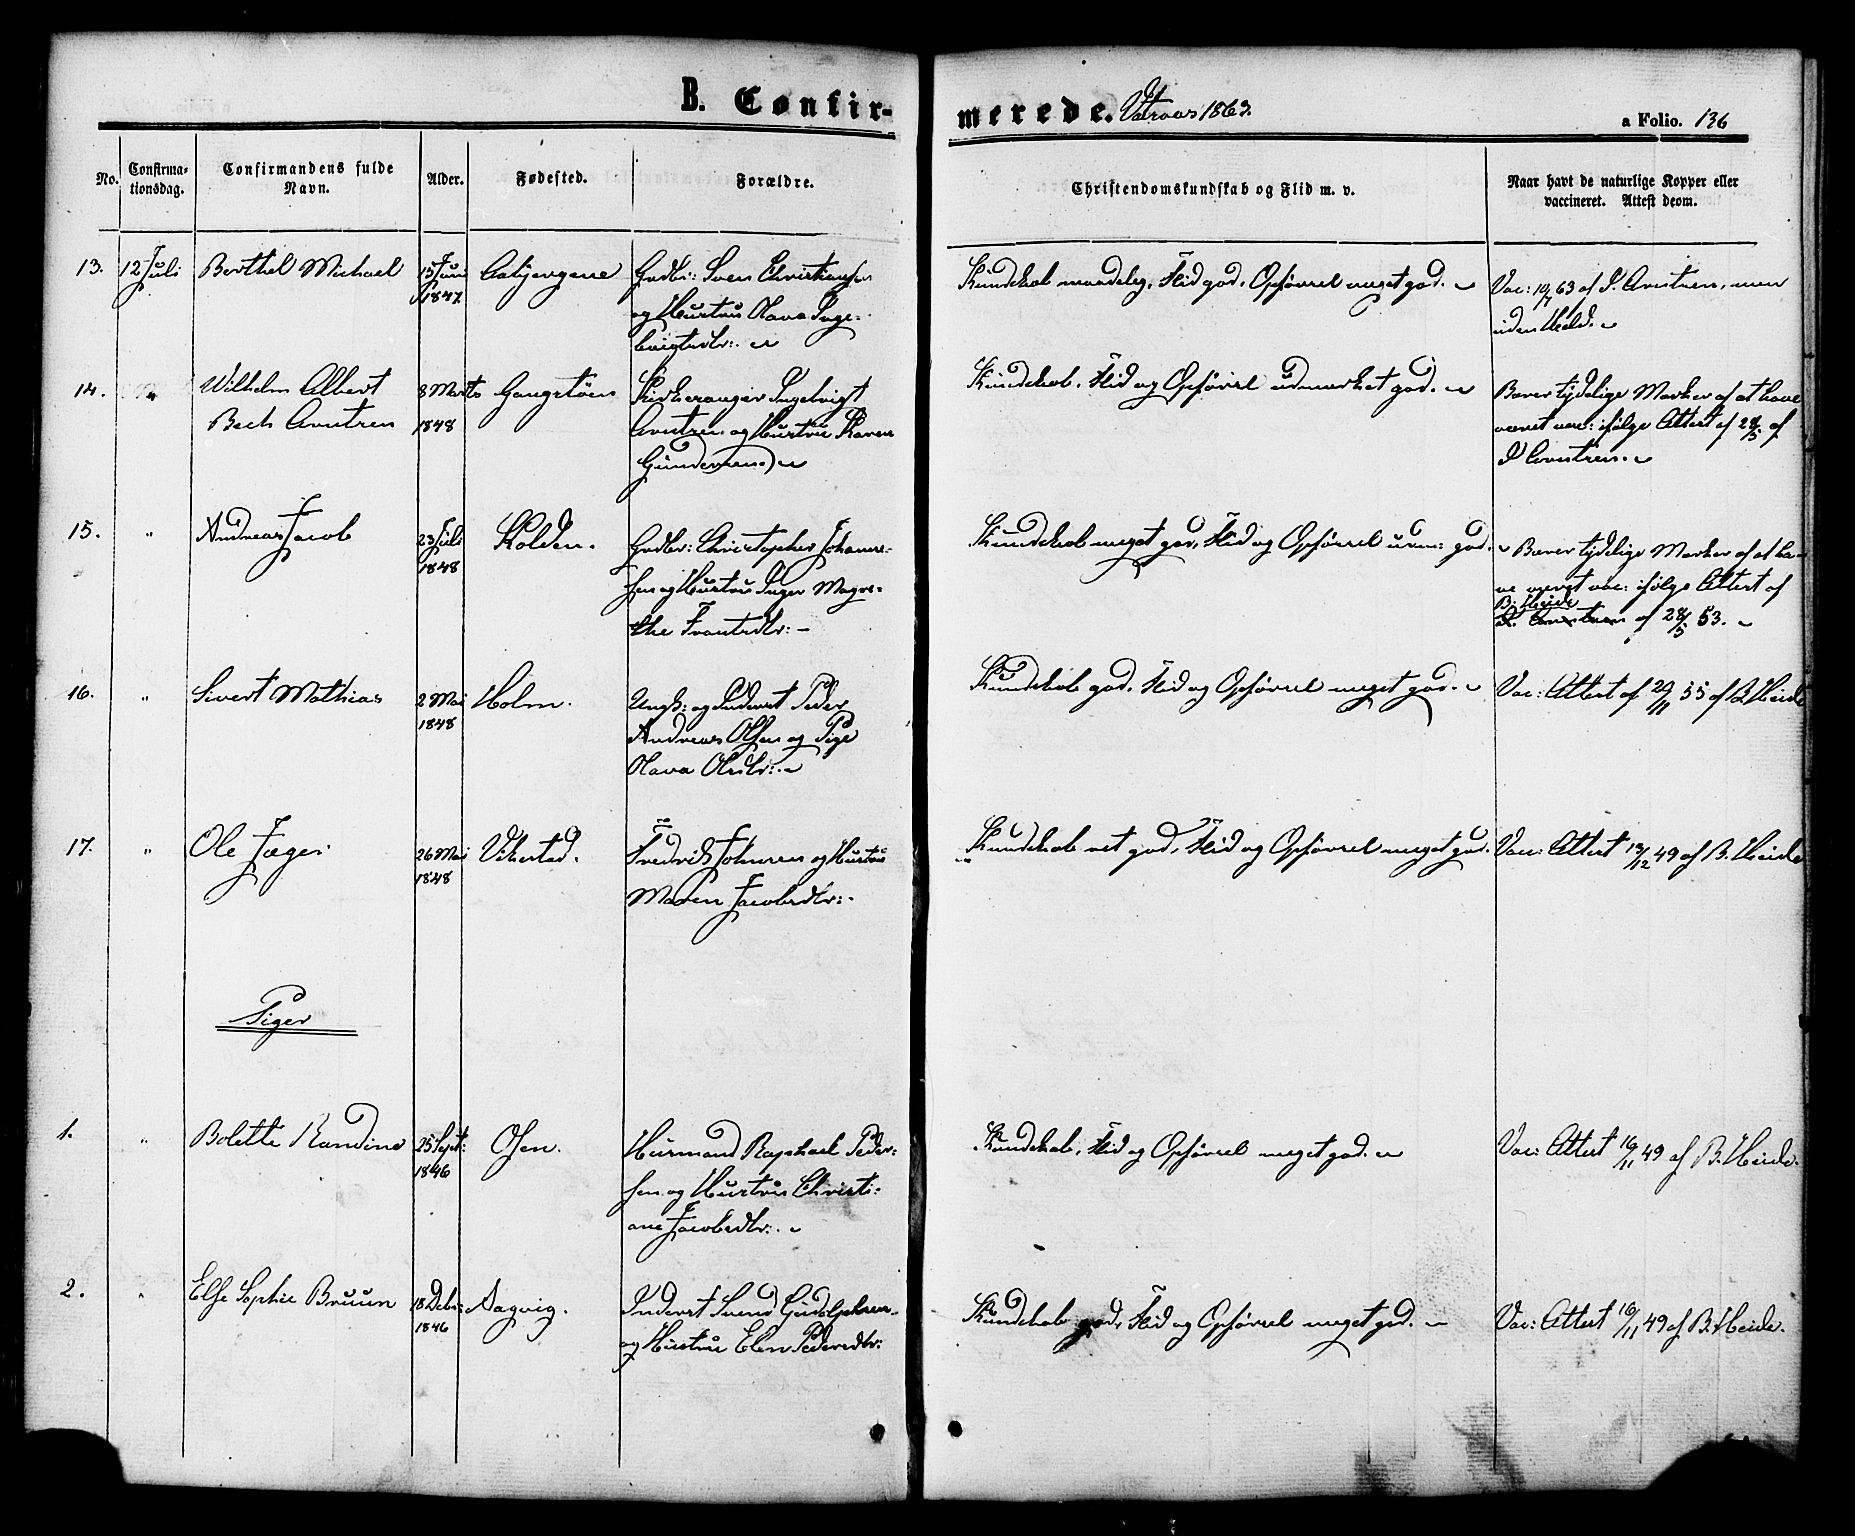 B. Confir-
merede. Vatraas 1863.
a Folio. 136
No.
Confirma-
tionsdag.
Confirmandens fulde
Navn.
Alder.
Fødested.
Forældre.
Christendomskundskab og Flid m. v.
Naar havt de naturlige Kopper eller
vaccineret. Attest deom.
13. 12 Juli Berthel Michael 15 Juni
1847
Gdbr: Sven Christiansen
og Hustru Olava Inge-
brigtsdtr:
Kundskab maadelig, Flid god, Opførsel meget god.
Vac: 10/7 63 af I. Arntzen, men
uden Held.
14. Wilhelm Albert
Bech Arntzen
8 Marts
1848
Arntzen og Hustru Karen
Kundskab, Flid og Opførsel udmærket god.
Bærer tydelige Mærker af at have
været vac: ifølge Attest af 28/5 af
I Arntzen.
15. " Andreas Jacob 23 Juli
1848
Kolden.
Gdbr: Christopher Johanne-
sen og Hustru Inger Magre-
the Frantzdtr:
Kundskab meget god, Flid og Opførsel udm: god.
Bærer tydelige Mærker af at ha-
ve været vac: ifølge Attest af
B. Heide
af 28/5 53.
16. " Sivert Mathias 2 Mai
1848
Holm.
Ungk: og Inderst Peder
Andreas Olsen og Pige
Olava Olsdtr:
Kundskab god, Flid og Opførsel meget god.
Vac: Attest af 20/11 55 af B. Heide
17. " Ole Jæger 26 Mai
1848
Vikestad.
Fredrik Johnsen og Hustru
Maren Jacobsdtr:
Kundskab ret god, Flid og Opførsel meget god.
Vac: Attest 13/12 49 af B. Heide
Piger
1. " Bolette Randine 25 Sept:
1846
Olsen.
Huusmand Raphael Peder-
sen og Hustru Christi-
ane Jacobsdtr:
Kundskab, Flid og Opførsel meget god.
Vac: Attest 16/11 49 af B. Heide.
2. " Else Sophie Bruun 18 Debr:
1846
Aagvig.
Inderst Svend
og Hustru Elen Pedersdtr:
Kundskab god, Flid og Opførsel meget god.
Vac: Attest 16/11 49 af B. Heide.